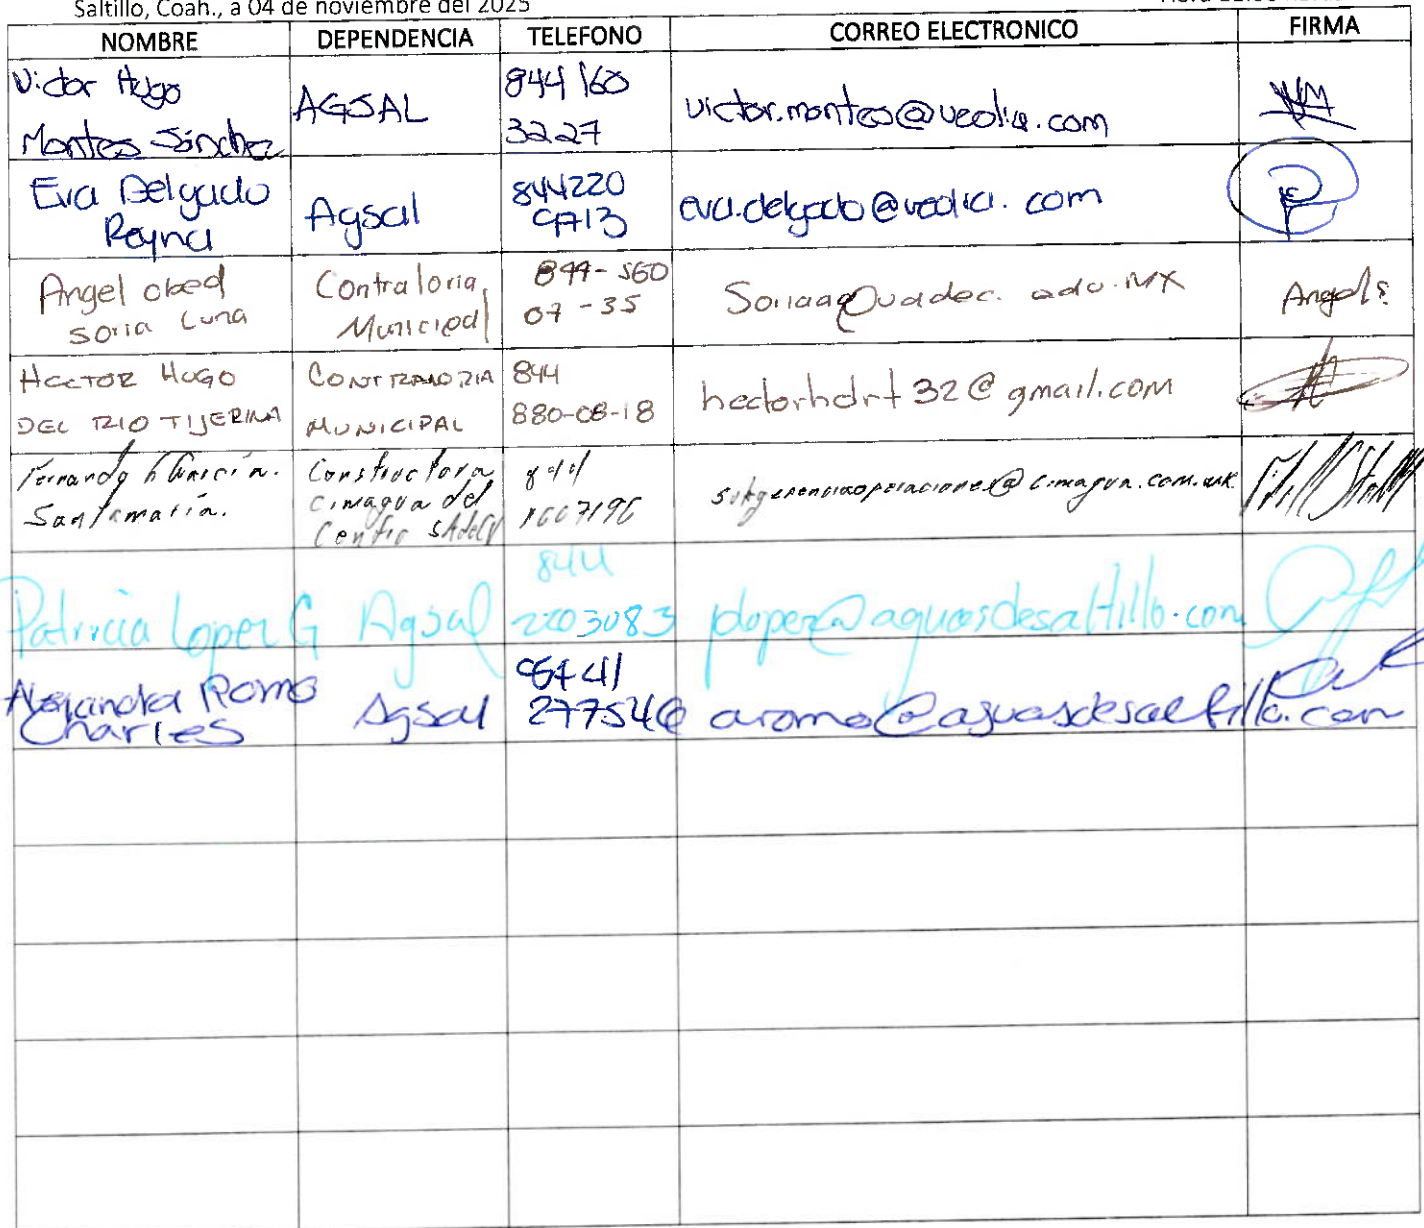 Saltillo, Coah., a 04 de noviembre del 2025
NOMBRE DEPENDENCIA TELEFONO CORREO ELECTRONICO FIRMA
Victor Hugo
Montes Sánchez
AGSAL
844 160
3227
victor.montes@veolia.com
Eva Delgado
Reyna
Agsal
844220
9713
eva.delgado@veolia.com
Angel obed
Soria Luna
Contraloria
Municipal
844-560
07-35
Angel S.
HECTOR HUGO
DEL RIO TIJERINA
CONTRALORIA
MUNICIPAL
844
880-08-18
hectorhdrt32@gmail.com
Fernando
Santamaría.
Constructora
Cimagua del
Centro SAdeCV
844
subgerenciaoperaciones@cimagua.com.mx
Patricia Lopez G
Agsal
844
2203083
plopez@aguasdesaltillo.com
Alejandra Romo
Charles
Agsal
aromo@aguasdesaltillo.com